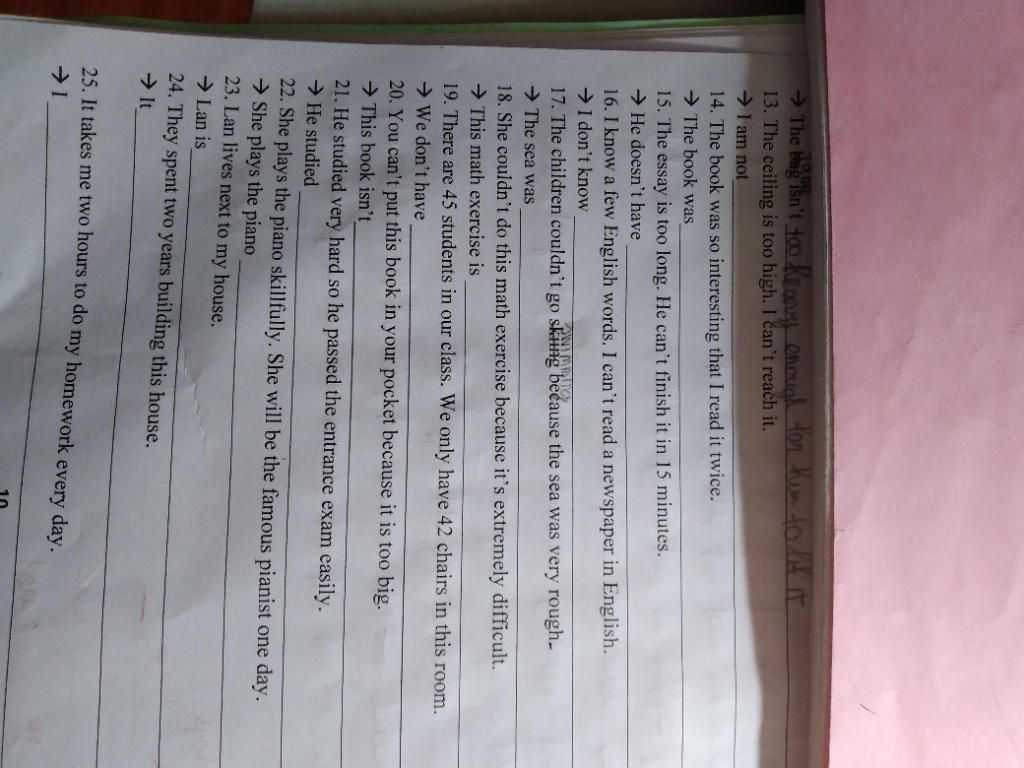 → The isn't too heavy enough for him to lift it
13. The ceiling is too high. I can't reach it.
→ I am not
14. The book was so interesting that I read it twice.
→ The book was
15. The essay is too long. He can't finish it in 15 minutes.
→ He doesn't have
16. I know a few English words. I can't read a newspaper in English.
→ I don't know
17. The children couldn't go skiing swimming because the sea was very rough.
→ The sea was
18. She couldn't do this math exercise because it's extremely difficult.
→ This math exercise is
19. There are 45 students in our class. We only have 42 chairs in this room.
→ We don't have
20. You can't put this book in your pocket because it is too big.
→ This book isn't
21. He studied very hard so he passed the entrance exam easily.
→ He studied
22. She plays the piano skillfully. She will be the famous pianist one day.
→ She plays the piano
23. Lan lives next to my house.
→ Lan is
24. They spent two years building this house.
→ It
25. It takes me two hours to do my homework every day.
→ I
10